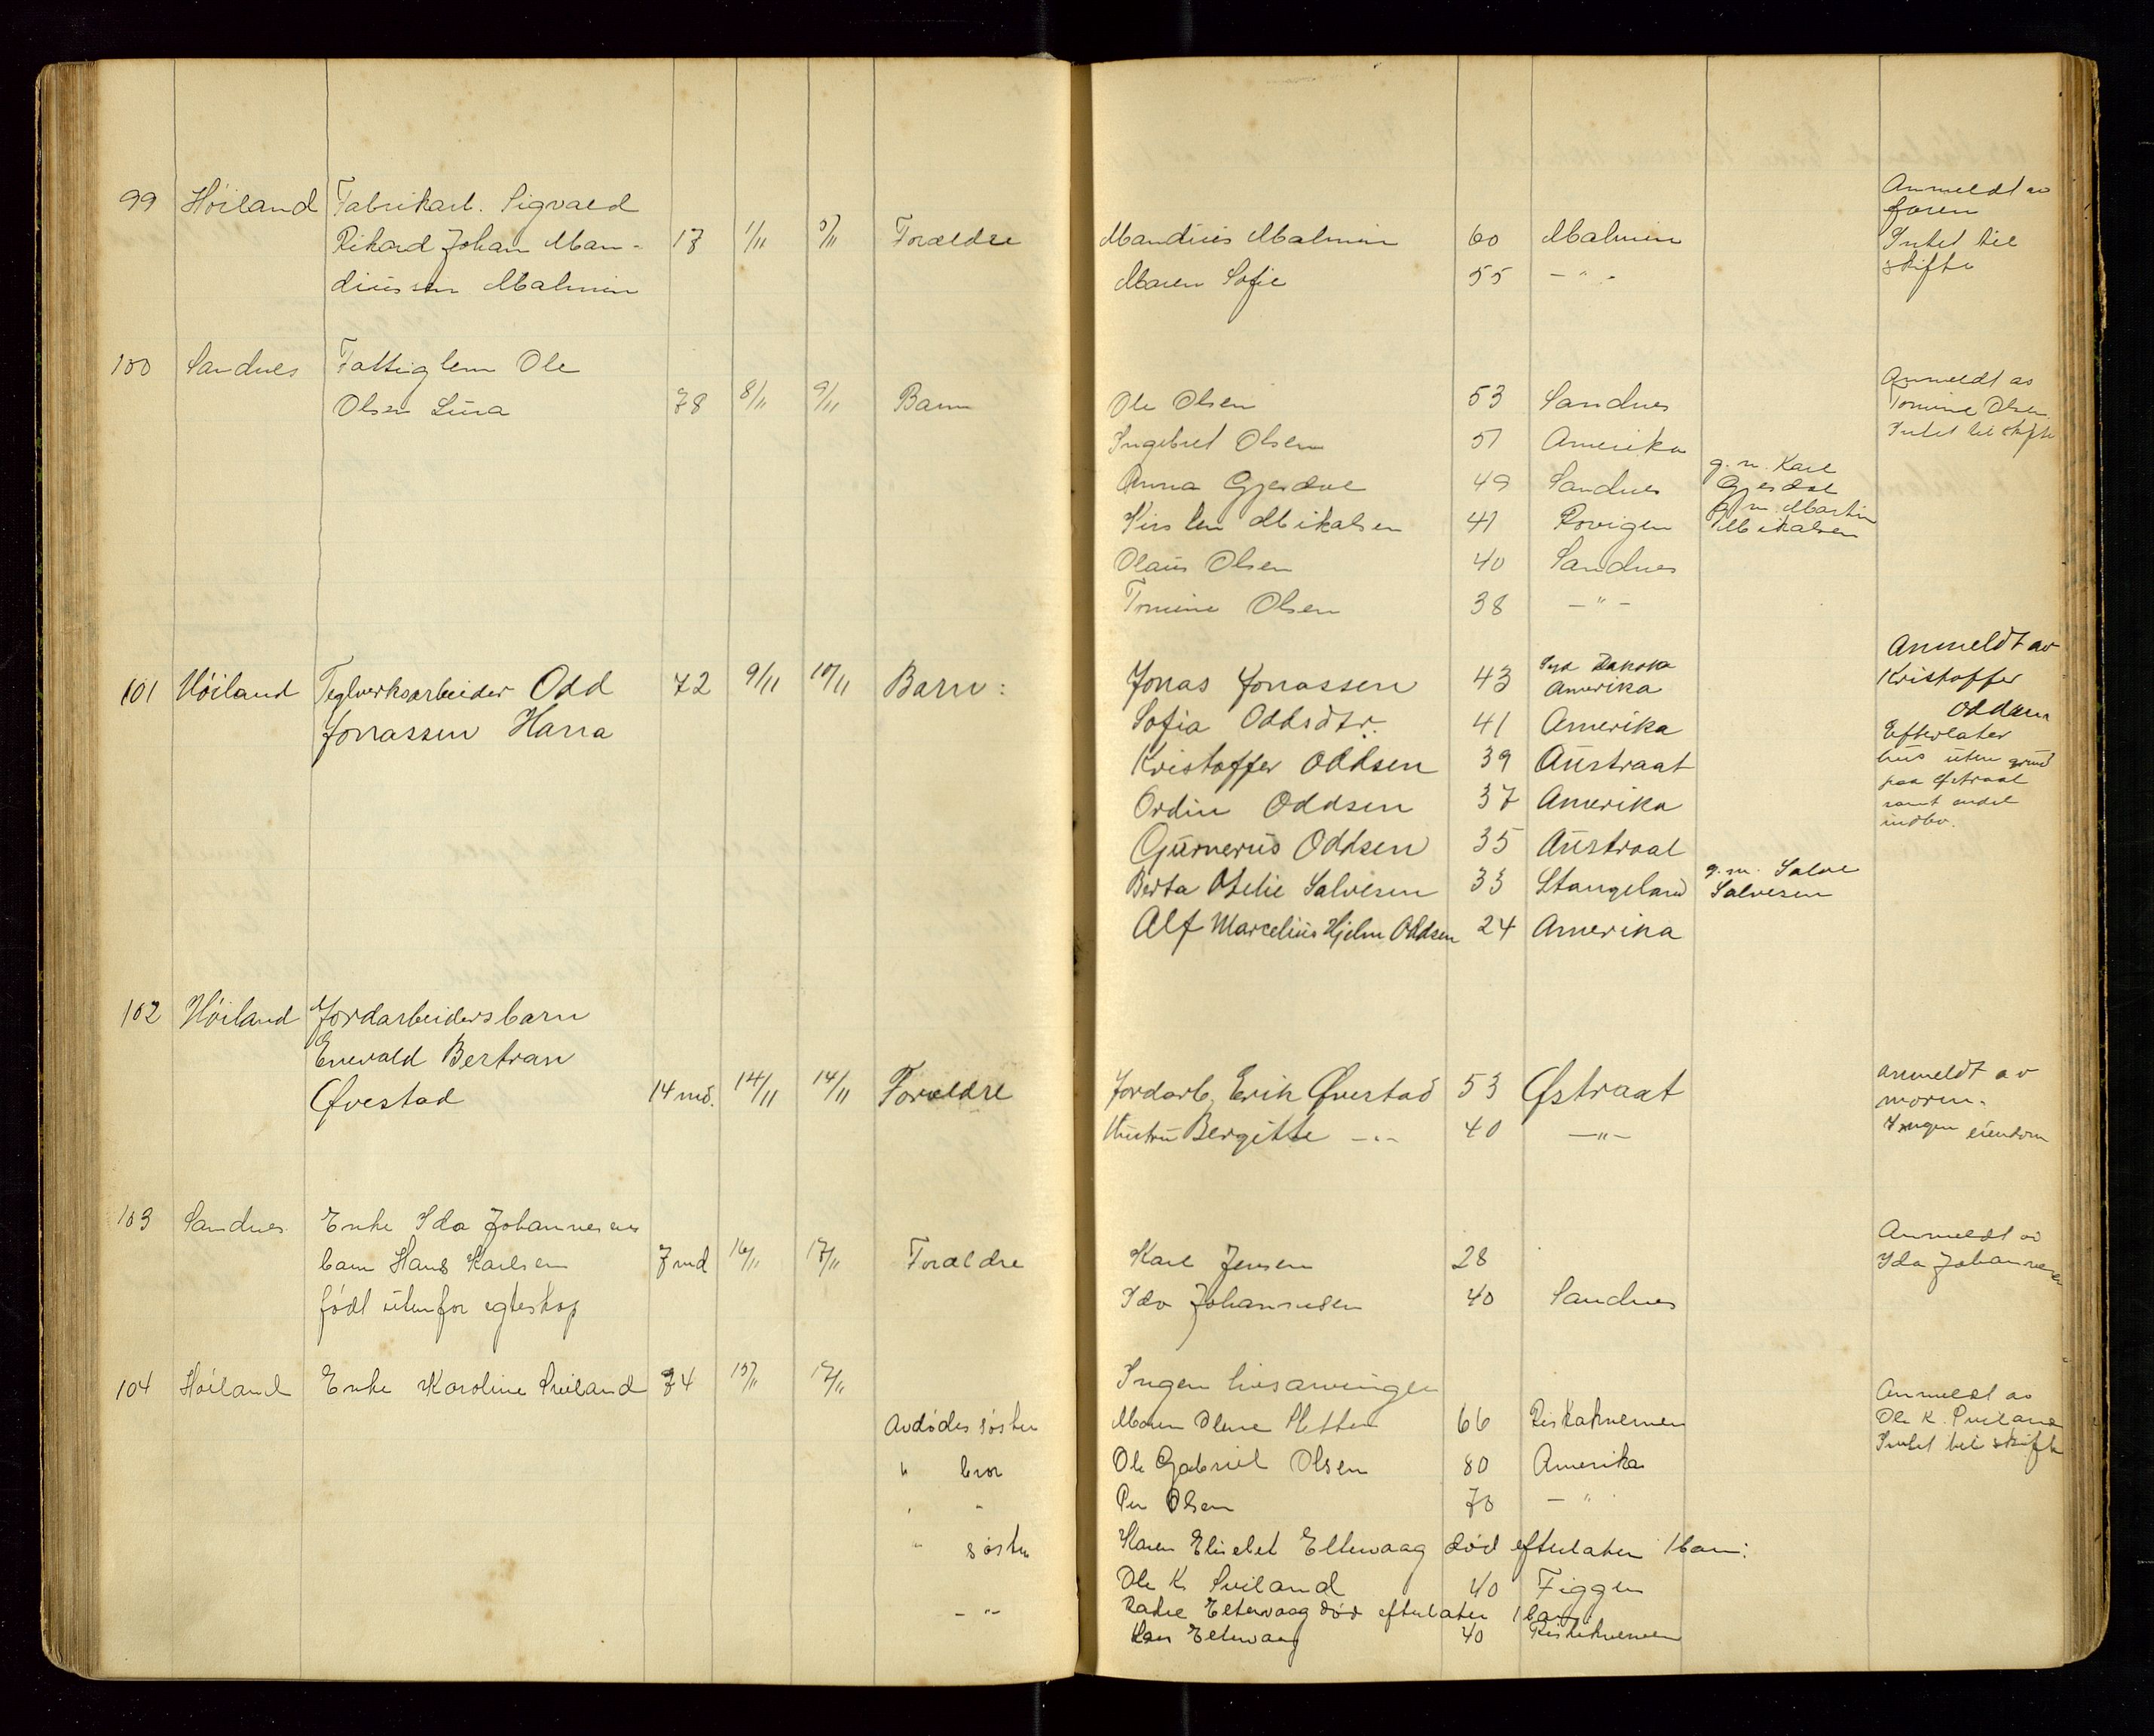 99 Höiland Fabrikarb. Sigvald
Rikard Johan Man- 17 1/11 5/11 Forældre Mandius Malmin 60 Malmin
diussen Malmin Maren Sofie 55 - " -
Anmeldt av
faren
Intet til
skifte
100 Sandnes Fattiglem Ole
Olsen Lura 78 8/11 9/11 Barn Ole Olsen 53 Sandnes
Ingebret Olsen 51 Amerika
Anna Gjesdal 49 Sandnes g. m. Karl Gjesdal
Kirsten Mikalsen 41 g. m. Martin Mikalsen
Olaus Olsen 40 Sandnes
Tomine Olsen 38 - " -
Anmeldt av
Tomine Olsen.
Intet til skifte
101 Höiland Teglverksarbeider Odd 72 9/11 10/11 Barn: Jonas Jonassen 43 Syd Dakota Amerika
Jonassen Hana Sofia Oddsdtr. 41 Amerika
Kristoffer Oddsen 39 Austraat
Ordin Oddsen 37 Amerika
Gurnerius Oddsen 35 Austraat
Berta Otelie Salvesen 33 Stangeland g. m. Salve Salvesen
Alf Marcelius Hjelm Oddsen 24 Amerika
Anmeldt av
Kristoffer
Oddsen
Efterlater
hus uten grund
paa Østraat
samt endel
indbo.
102 Höiland Jordarbeidersbarn
Enevald Bertran
Øvestad 14 md. 14/11 14/11 Forældre Jordarb. Erik Øvestad 53 Østraat
Hustru Bergitte - " - 40 - " -
anmeldt av
moren.
Ingen eiendom
103 Sandnes Enke Ida Johannesens
barn Hans Karlsen 7 md 16/11 17/11 Forældre Karl Jensen 28
født utenfor egteskap Ida Johannesen 40 Sandnes
Anmeldt av
Ida Johannesen
104 Höiland Enke Karoline Sviland 74 15/11 17/11 Ingen livsarvinger
Avdødes søster Maren Olene Sletten 66 Riskakvernen
" bror Ole Gabriel Olsen 80 Amerika
" " Per Olsen 70 - "
" søster Karen Elisebet Eltervaag død efterlater 1 barn:
Ole K. Sviland 40 Figgen
- " - Eltervaag død efterlater 1 barn
Eltervaag 40 Riskekvernen
Anmeldt av
Ole K. Sviland
Intet til skifte